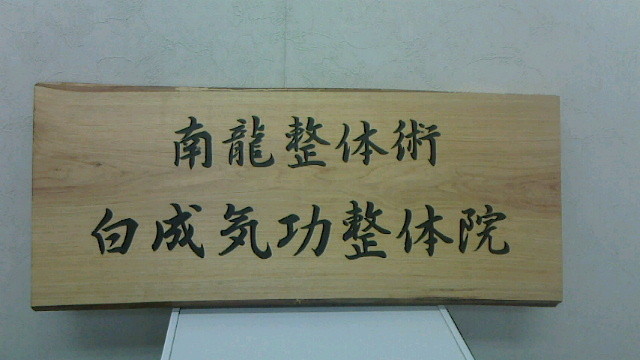 南龍整体術
白成気功整体院